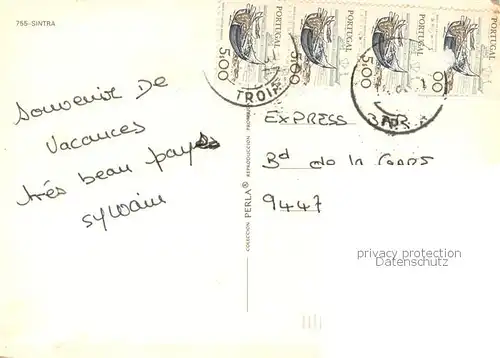 755-SINTRA
PORTUGAL
PORTUGAL
PORTUGAL
PORTUGAL
5.00
5.00
5.00
TROIA
Souvenir De
Vacances
très beau pays
sylvain
COLECCION PERLA® REPRODUCCION
EXPRESS BAR
Bd de la Gare
9447
privacy protection
Datenschutz